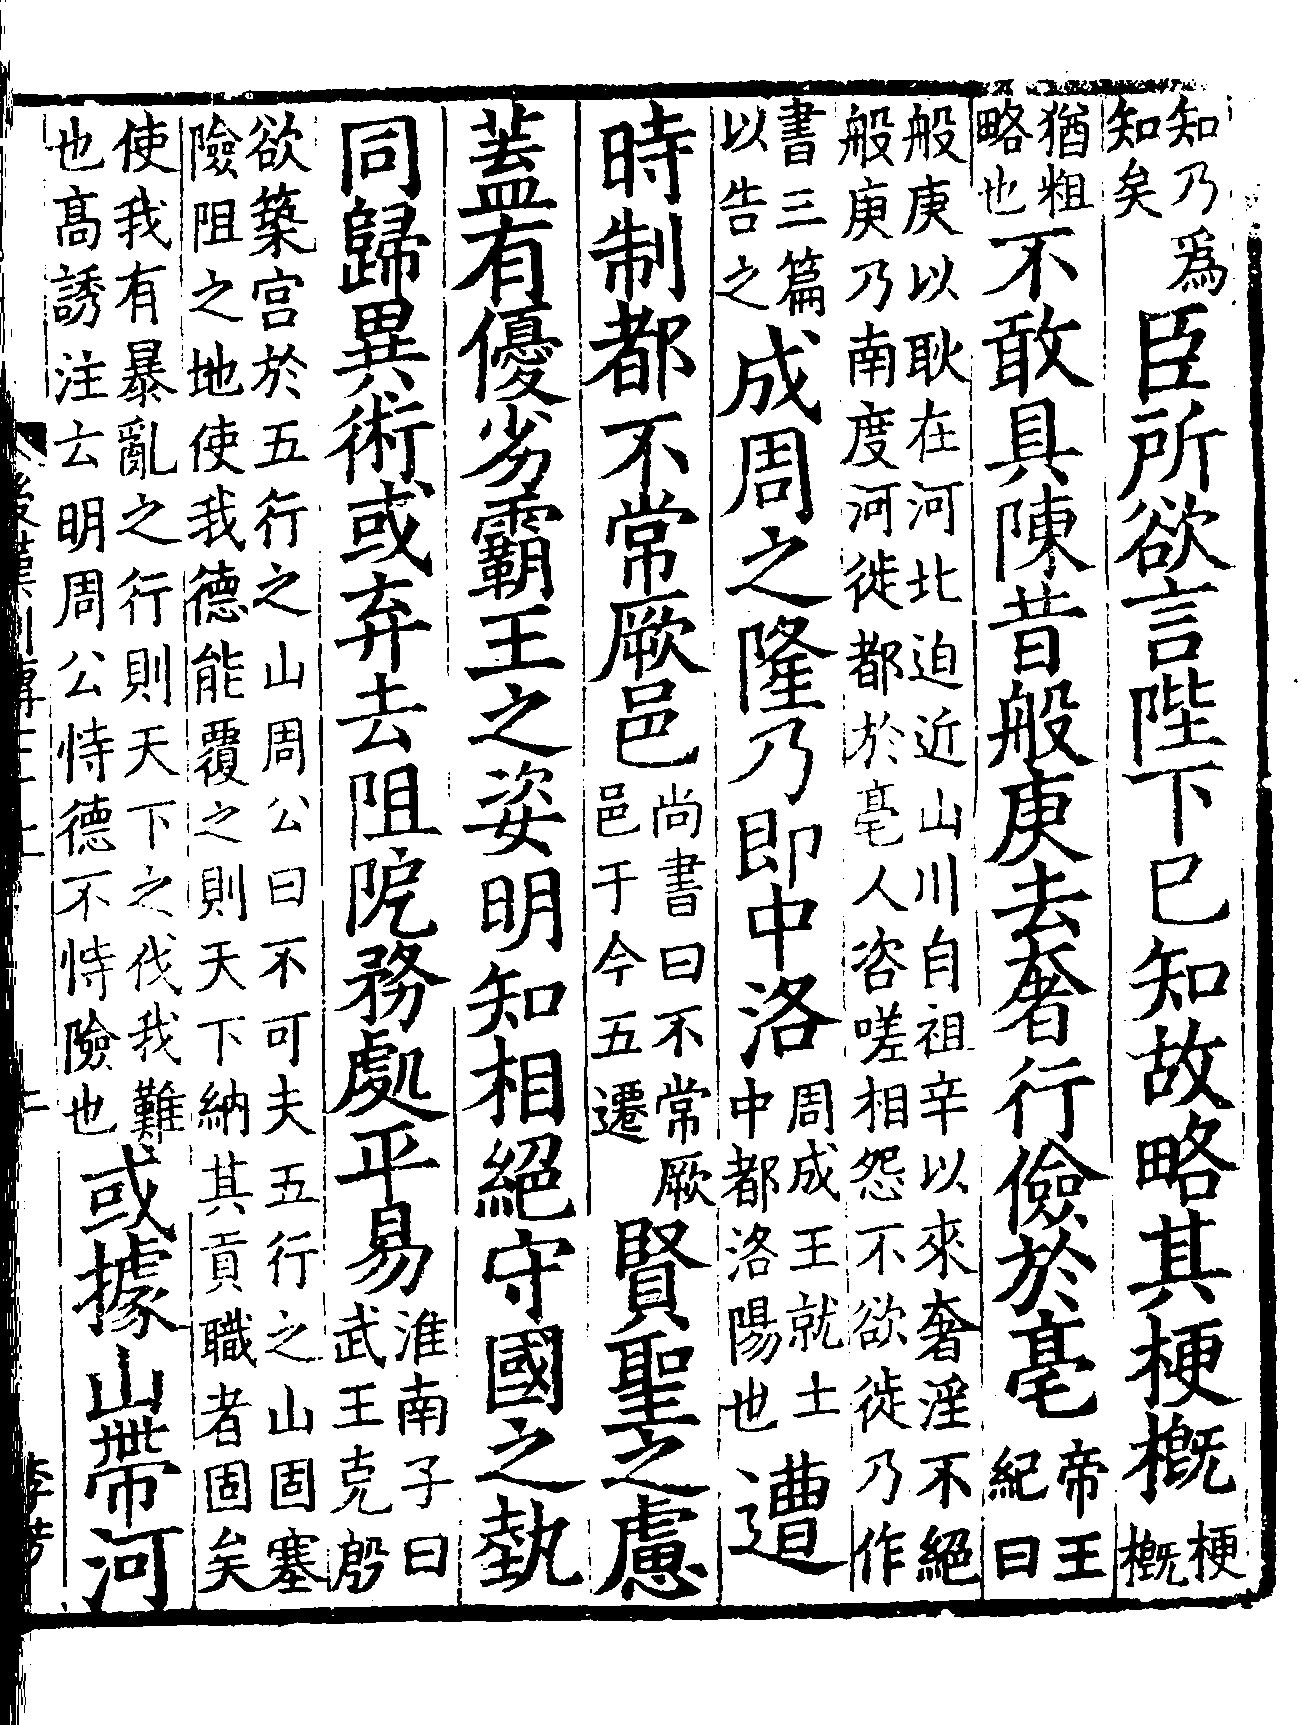 知乃爲知矣臣所欲言陛下已知故略其梗概梗概
猶粗略也不敢具陳昔般庚去奢行儉於亳帝王紀曰
般庚以耿在河北迫近山川自祖辛以來奢淫不絕般庚乃南度河徙都於亳人咨嗟相怨不欲徙乃作
書三篇以告之成周之隆乃即中洛周成王就土中都洛陽也遭
時制都不常厥邑尚書曰不常厥邑于今五遷賢聖之慮
蓋有優劣霸王之姿明知相絕守國之埶
同歸異術或弃去阻阸務處平易淮南子曰武王克殷
欲築宮於五行之山周公曰不可夫五行之山固塞險阻之地使我德能覆之則天下納其貢職者固矣
使我有暴亂之行則天下之伐我難也高誘注云明周公恃德不恃險也或據山帶河